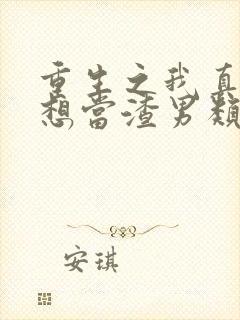 重生之我真
想當渣男類
安琪